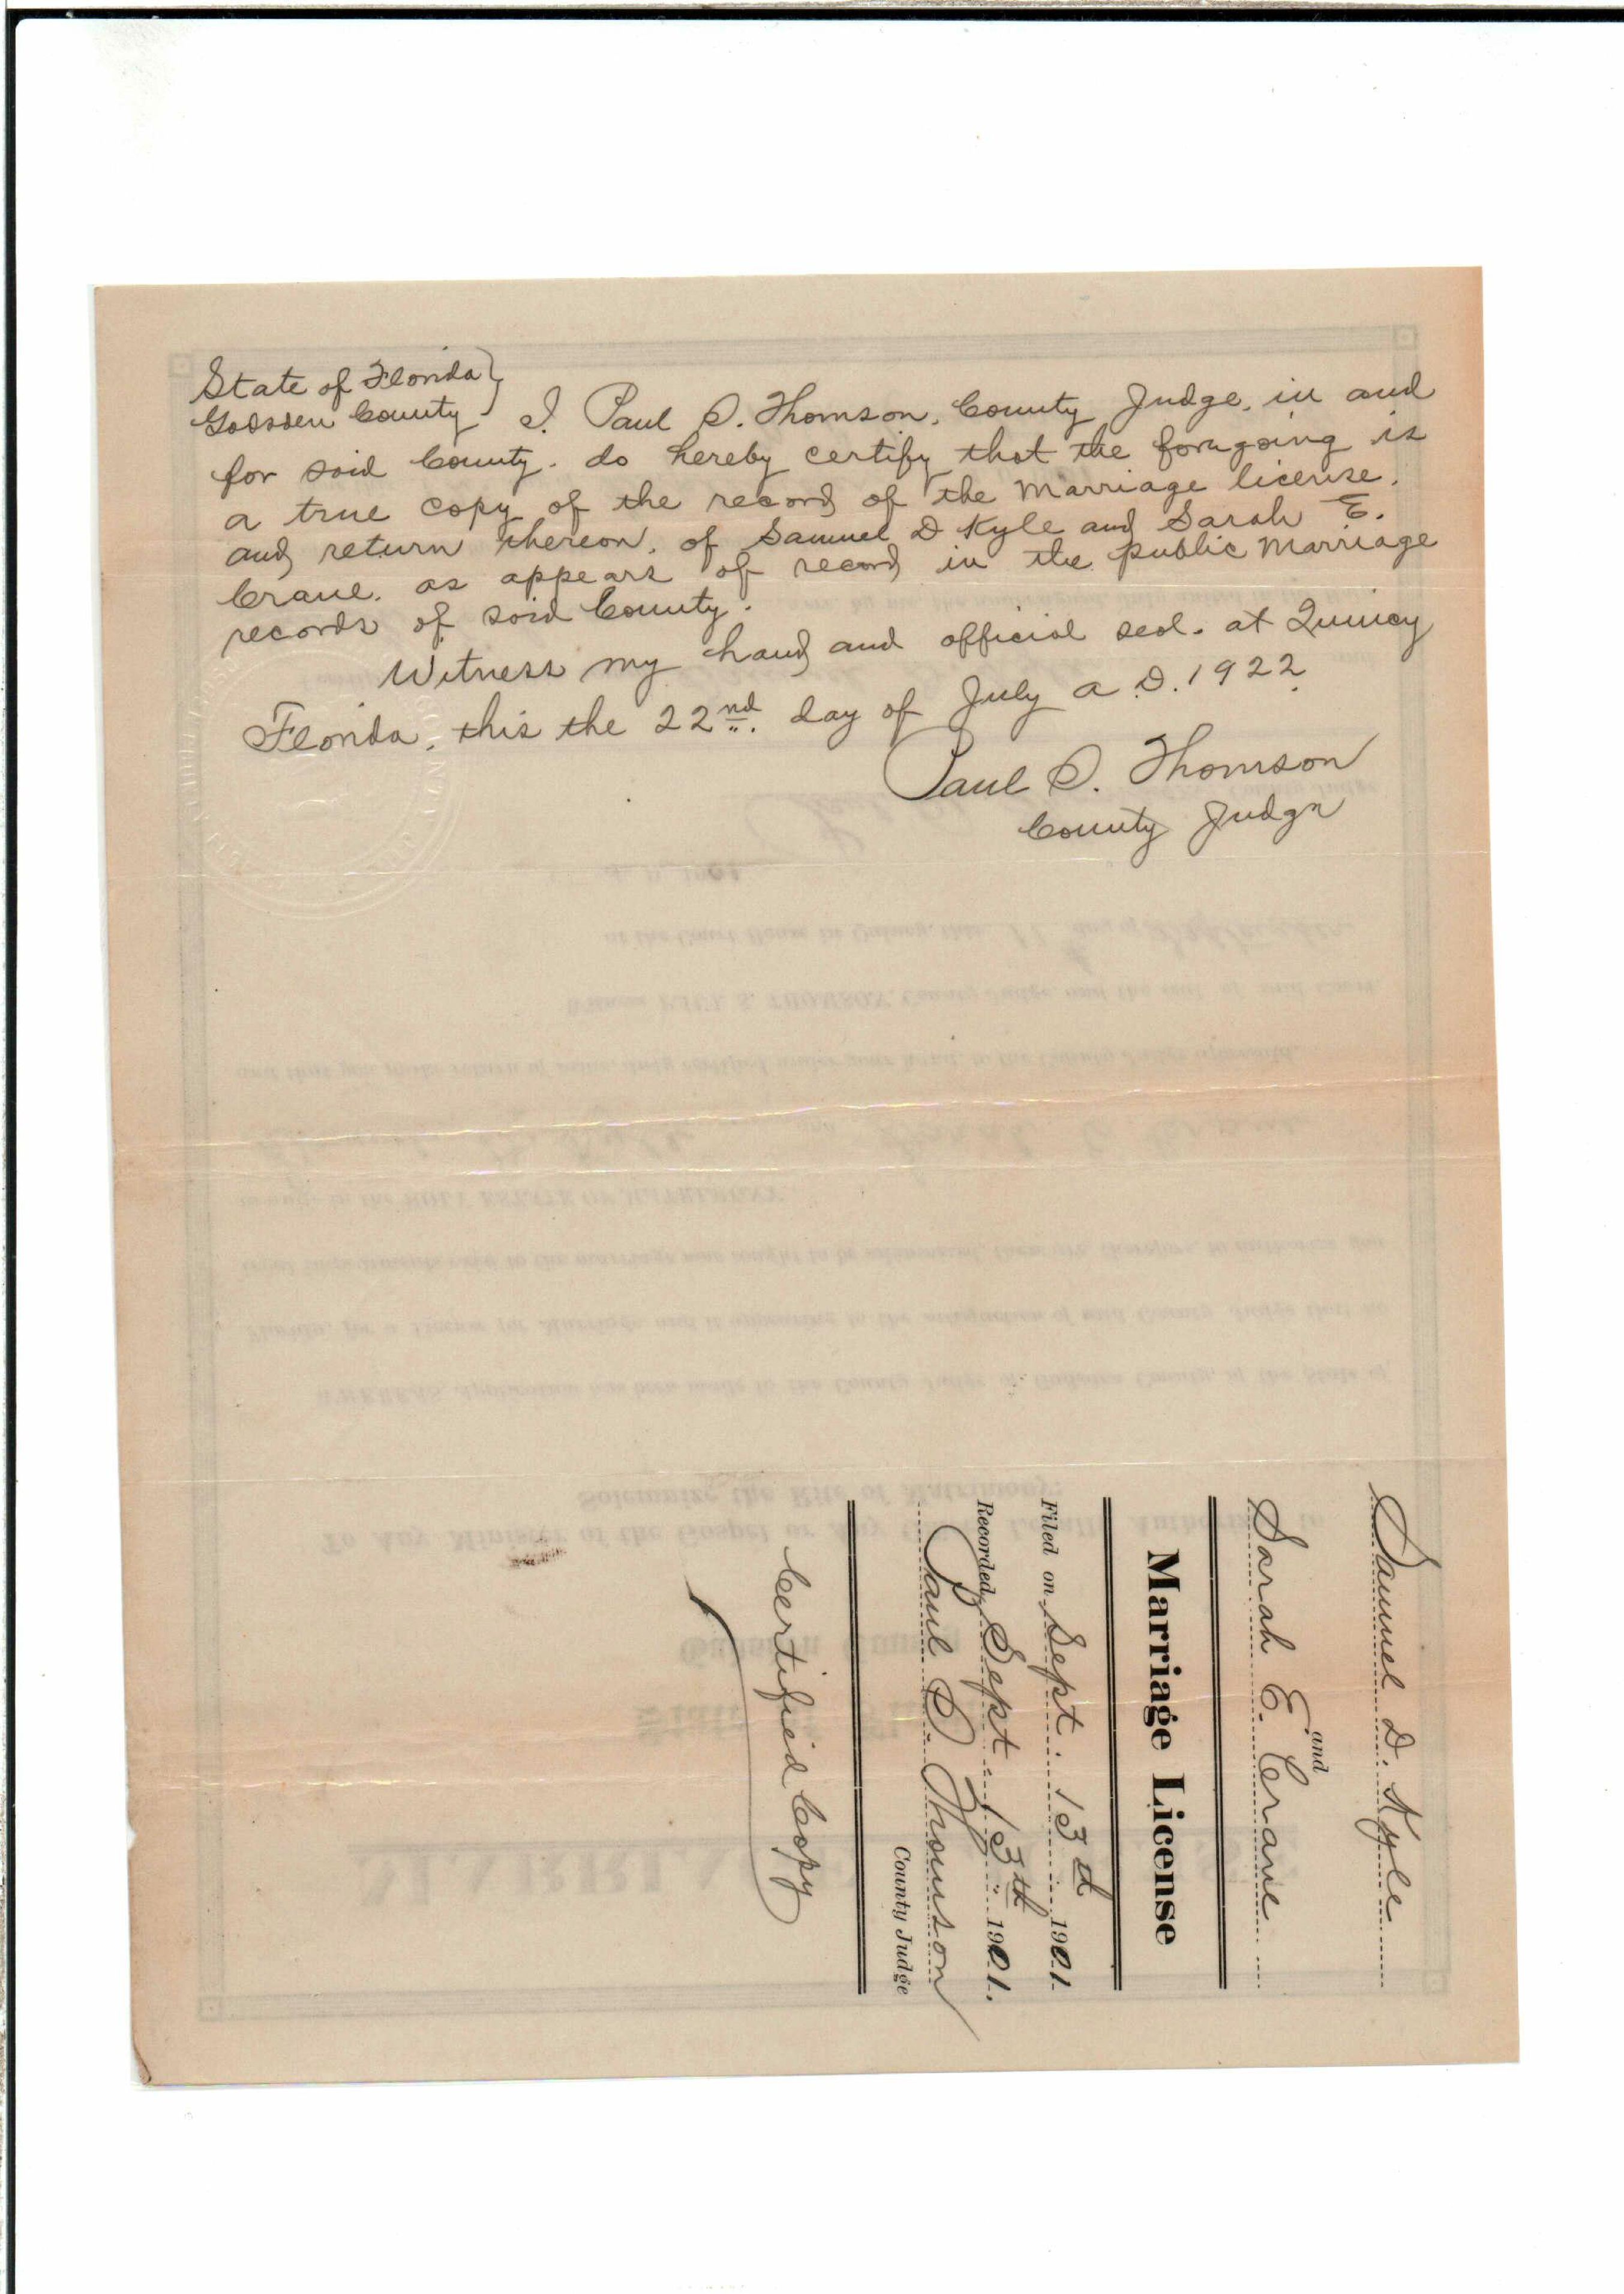 State of Florida }
Gadsden County } I, Paul S. Thomson, County Judge, in and
for said County, do hereby certify that the forngoing is
a true copy of the record of the Marriage license,
and return thereon, of Samuel D Kyle and Sarah E.
Crane, as appears of record in the public Marriage
records of said County.
Witness my hand and official seal, at Quincy
Florida, this the 22nd. day of July A.D. 1922
Paul S. Thomson
County Judge
Samuel D. Kyle
and
Sarah E. Crane
Marriage License
Filed on Sept. 13th 1901
Recorded Sept. 13th 1901.
Paul S. Thomson
County Judge
Certified Copy